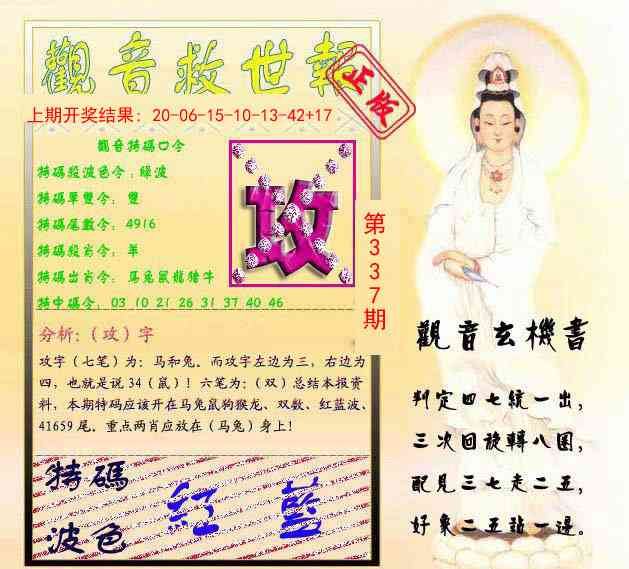 觀音救世報
正版
上期开奖结果：20-06-15-10-13-42+17
觀音特碼口令
特碼殺波色令：綠波
特碼單雙令：雙
特碼尾數令：4916
特碼殺肖令：羊
特碼出肖令：馬兔鼠龍豬牛
特中碼令：03 10 21 26 31 37 40 46
攻
第337期
分析：（攻）字
攻字（七笔）为：马和兔。而攻字左边为三，右边为
四，也就是说 34（鼠）！六笔为：（双）总结本报资
料，本期特码应该开在马兔鼠狗猴龙、双数、红蓝波、
41659 尾。重点两肖应放在（马兔）身上！
特碼
波色
紅 藍
觀音玄機書
判定四七統一出，
三次回旋轉八圍，
配見三七走二五，
好象二五站一邊。